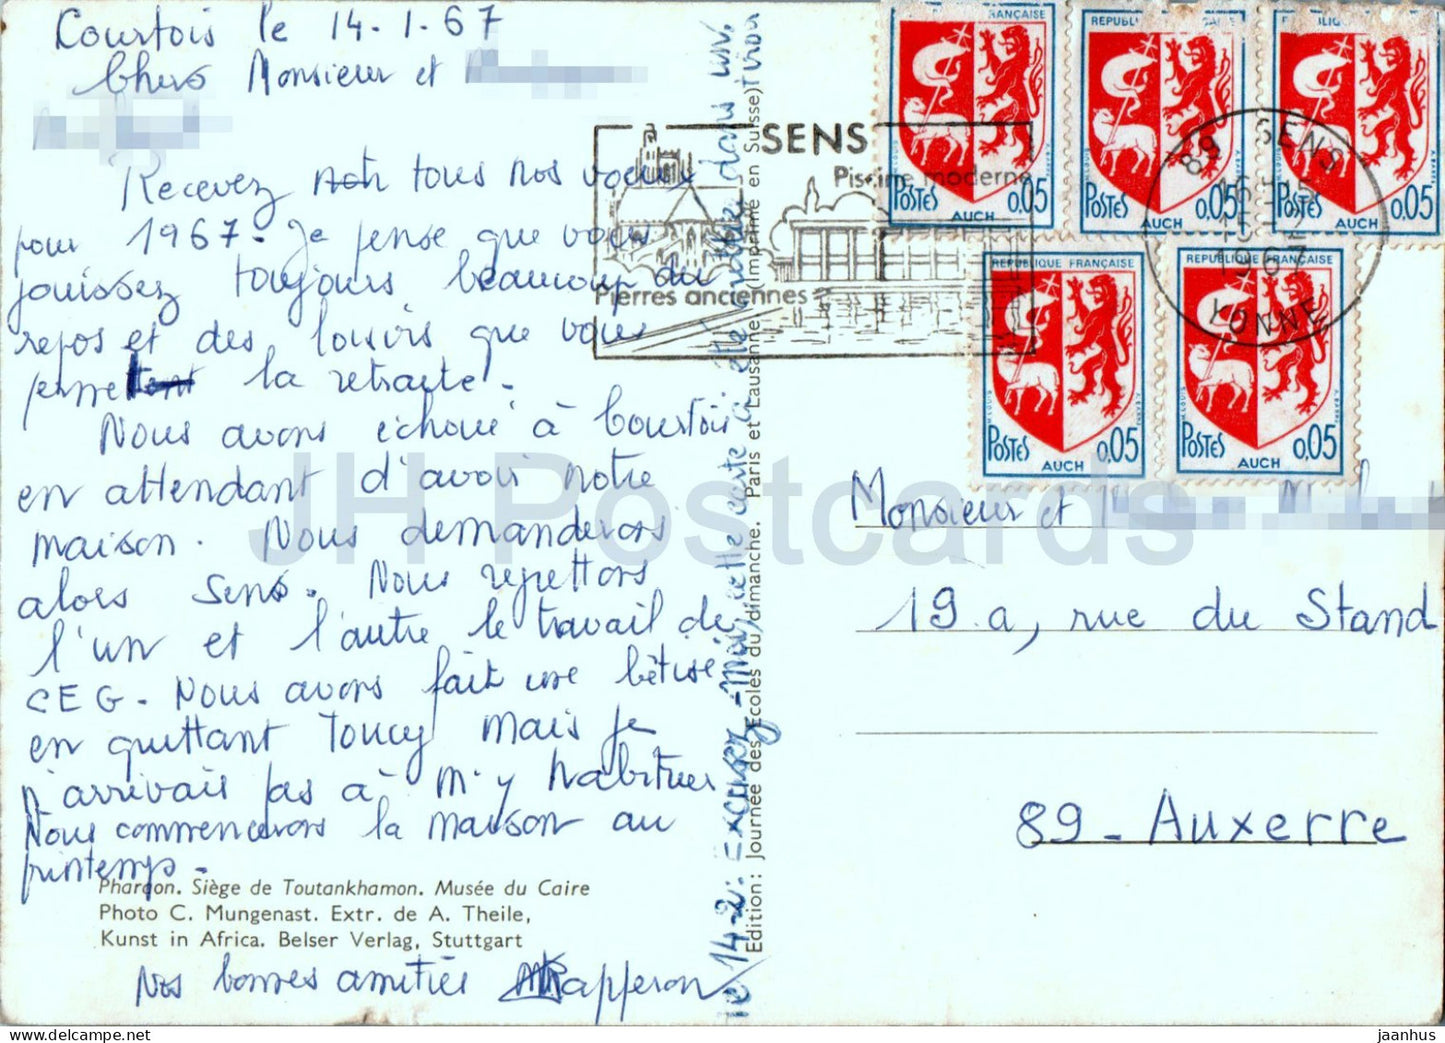 Courtois le 14-1.67
Chers Monsieur et
Recevez tous nos voeux
pour 1967 - Je pense que vous
jouissez toujours beaucoup du
repos et des loisirs que vous
permet la retraite -
Nous avons échoué à Courtois
en attendant d'avoir notre
maison. Nous demanderons
alors Sens. Nous regrettons
l'un et l'autre le travail de
CEG - Nous avons fait une bêtise
en quittant Toucy mais je
n'arrivais pas à m'y habituer
Nous commencerons la maison au
printemps -
Pharaon. Siège de Toutankhamon. Musée du Caire
Photo C. Mungenast. Extr. de A. Theile,
Kunst in Africa. Belser Verlag, Stuttgart
Nos bonnes amitiés Rapperon
le 14-2: Excusez-moi, cette carte a été oubliée dans un tiroir
Edition: Journée des Ecoles du dimanche. Paris et Lausanne (Imprimé en Suisse)
SENS
Piscine moderne
Pierres anciennes
89 SENS
15 H
15-2
1967
YONNE
FRANÇAISE
POSTES
0,05
AUCH
REPUBLIQUE FRANÇAISE
POSTES
0,05
AUCH
POSTES
0,05
AUCH
REPUBLIQUE FRANÇAISE
POSTES
0,05
AUCH
REPUBLIQUE FRANÇAISE
POSTES
0,05
AUCH
Monsieur et
19.a, rue du Stand
89 - Auxerre
JH Postcards
jaanhus | delcampe.net